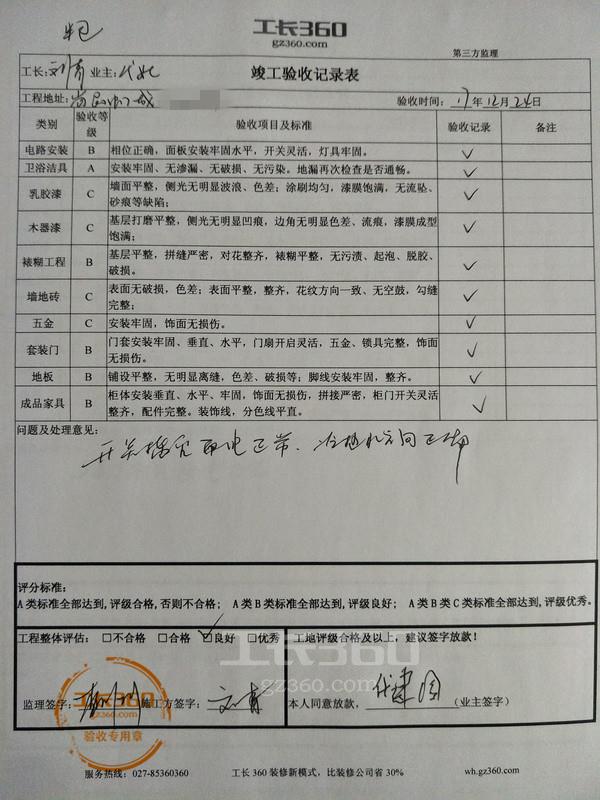 工长360
gz360.com
第三方监理
工长:刘青 业主:
竣工验收记录表
工程地址:
验收时间:17年12月24日
类别 验收等级 验收项目及标准 验收记录 备注
电路安装 B 相位正确,面板安装牢固水平,开关灵活,灯具牢固。 ✓
卫浴洁具 A 安装牢固、无渗漏、无破损、无污染。地漏再次检查是否通畅。 ✓
乳胶漆 C 墙面平整,侧光无明显波浪、色差;涂刷均匀,漆膜饱满,无流坠、
砂痕等缺陷; ✓
木器漆 C 基层打磨平整,侧光无明显凹痕,边角无明显色差、流痕,漆膜成型
饱满; ✓
裱糊工程 B 基层平整,拼缝严密,对花整齐,裱糊平整,无污渍、起泡、脱胶、
破损。 ✓
墙地砖 C 表面无破损,色差;表面平整,整齐,花纹方向一致、无空鼓,勾缝
完整; ✓
五金 C 安装牢固,饰面无损伤。 ✓
套装门 B 门套安装牢固、垂直、水平,门扇开启灵活,五金、锁具完整,饰面
无损伤。 ✓
地板 B 铺设平整,无明显离缝,色差、破损等;脚线安装牢固,整齐。 ✓
成品家具 B 柜体安装垂直、水平、牢固,饰面无损伤,拼接严密,柜门开关灵活
整齐,配件完整。装饰线,分色线平直。 ✓
问题及处理意见:
开关 正常、 方向正确
评分标准:
A类标准全部达到,评级合格,否则不合格; A类B类标准全部达到,评级良好; A类B类C类标准全部达到,评级优秀。
工程整体评估: □不合格 □合格 ☑良好 □优秀 工地评级合格及以上,建议签字放款!
工长360
gz360.com
监理签字: 施工方签字:刘青 本人同意放款, (业主签字)
工长360
验收专用章
服务热线:027-85360360 工长360装修新模式,比装修公司省30% wh.gz360.com